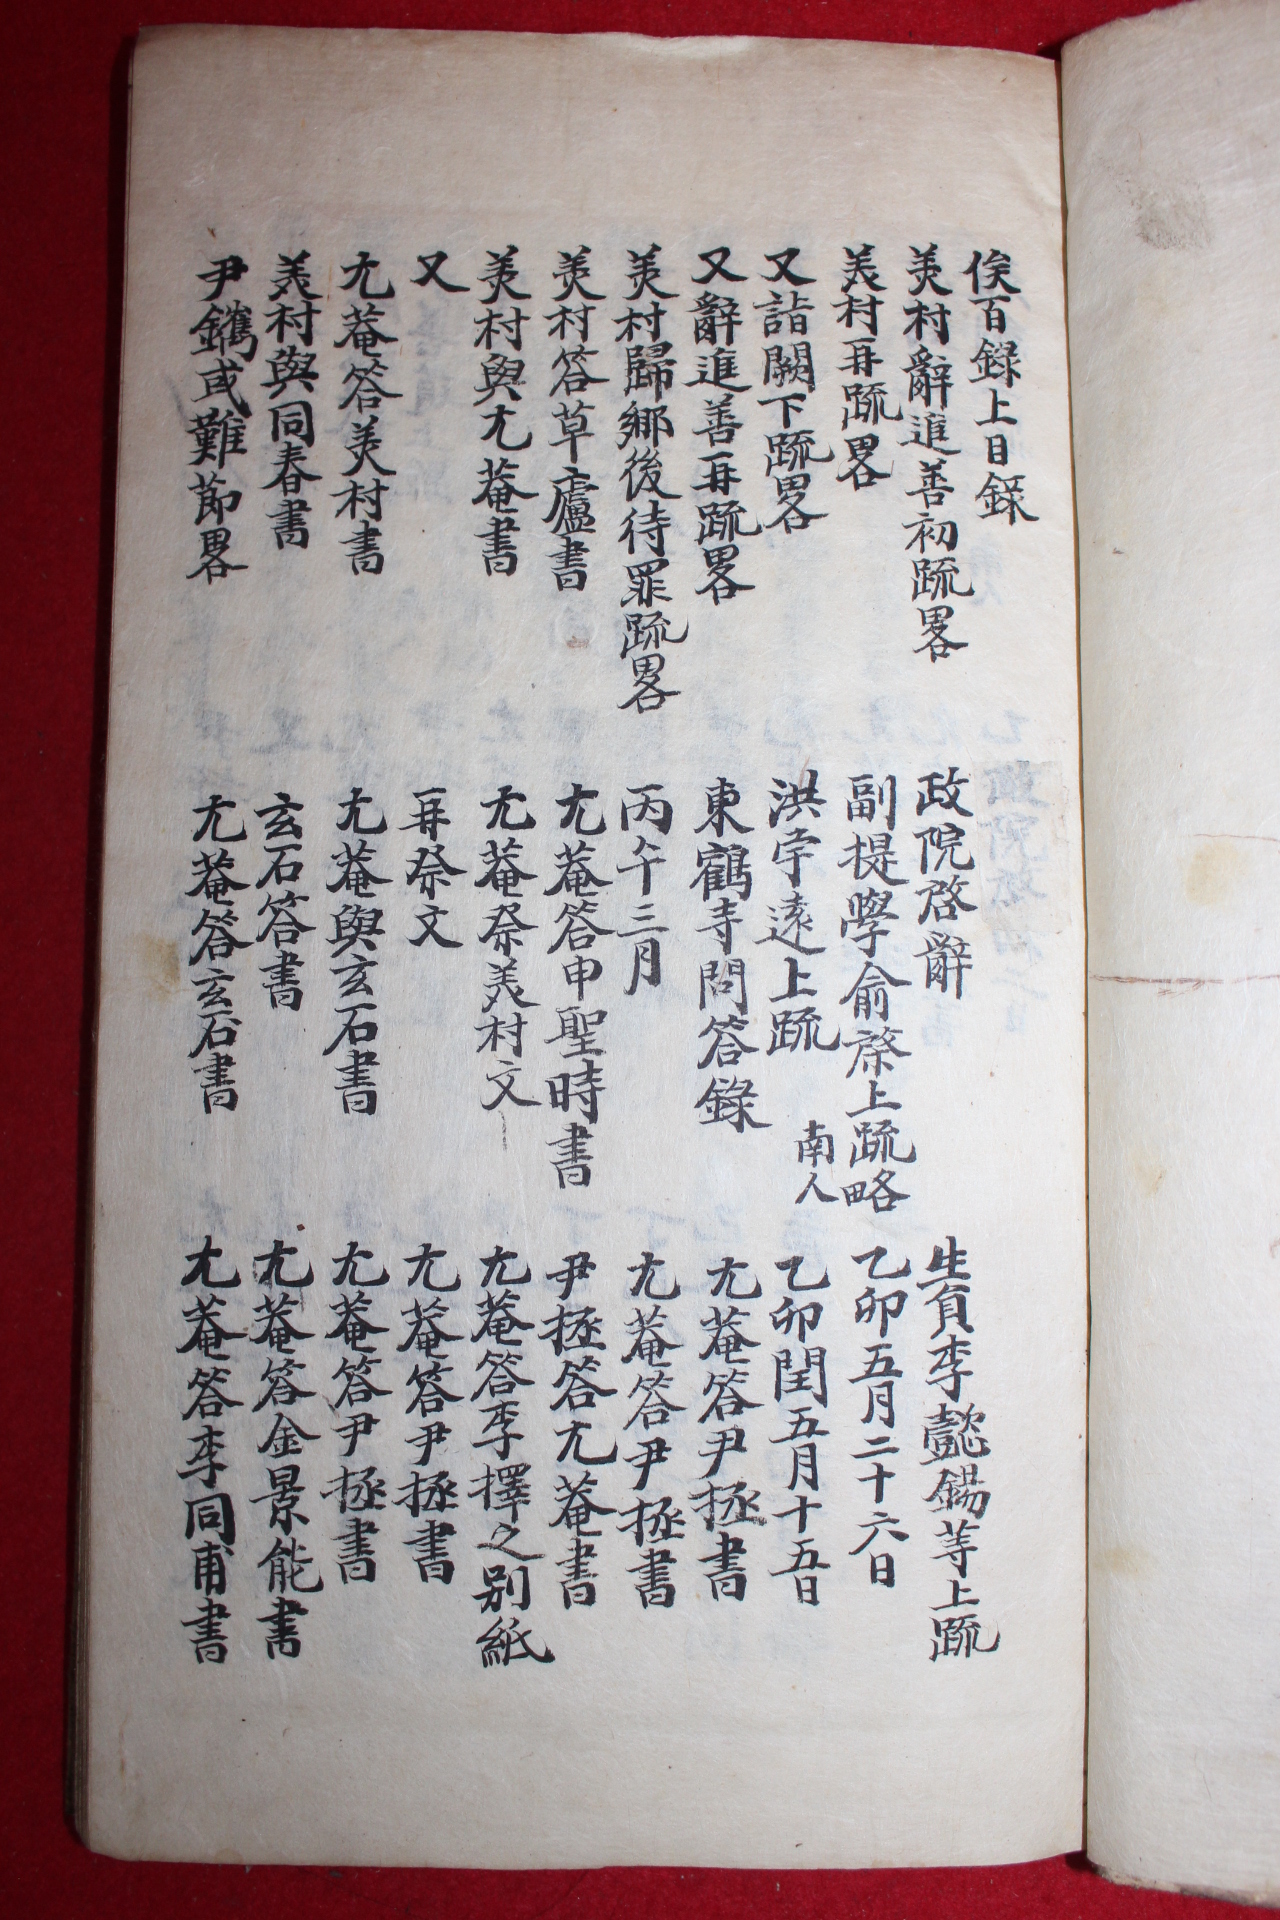 俟百錄上目錄
美村辭進善初疏畧
美村再疏畧
又詣闕下疏畧
又辭進善再疏畧
美村歸鄉後待罪疏畧
美村答草廬書
美村與尤菴書
又
尤菴答美村書
美村與同春書
尹鑴或難節畧
政院啓辭
副提學俞棨上疏略
洪宇遠上疏 南人
東鶴寺問答錄
丙午三月
尤菴答申聖時書
尤菴祭美村文
再祭文
尤菴與玄石書
玄石答書
尤菴答玄石書
生員李懿錫等上疏
乙卯五月二十六日
乙卯閏五月十五日
尤菴答尹拯書
尤菴答尹拯書
尹拯答尤菴書
尤菴答李擇之別紙
尤菴答尹拯書
尤菴答尹拯書
尤菴答金景能書
尤菴答李同甫書